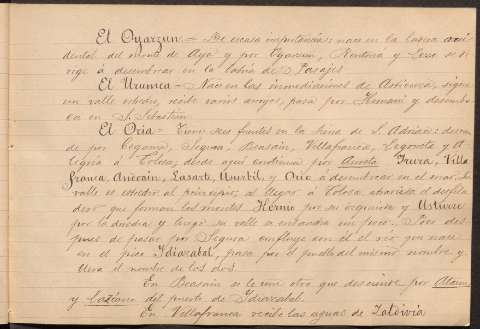 El Oyarzun.- De escasa importancia: nace en la ladera occi
dental del monte de Aya y por Oyarzun, Renteria y Lezo se di
rige á desembocar en la bahia de Pasajes
El Urumea - Nace en las inmediaciones de Articuza, sigue
un valle estrecho, recibe varios arroyos, pasa por Hernani y desembo
ca en S. Sebastian
El Oria - Tiene sus fuentes en la peña de S. Adrian: descien
de por Cegama, Segura, Beasain, Villafranca, Legorreta y A
legria á Tolosa, desde aquí continua por Anoeta Irura, Villa
franca, Andoain, Lasarte, Usurbil, y Orio á desembocar en el mar. Su
valle es estrecho al principio, al llegar á Tolosa atraviesa el desfila
dero que forman los montes Hernio por su izquierda y
por la derecha y luego su valle se ensancha un poco. Poco des
pues de pasar por Segura confluye con él el rio que nace
en el pico Idiazabal, pasa por el pueblo del mismo nombre y
lleva el nombre de los dos.
En Beasain se le une otro que desciende por Ataun
y Lazcano del puerto de Idiazabal.
En Villafranca recibe las aguas de Zaldivia